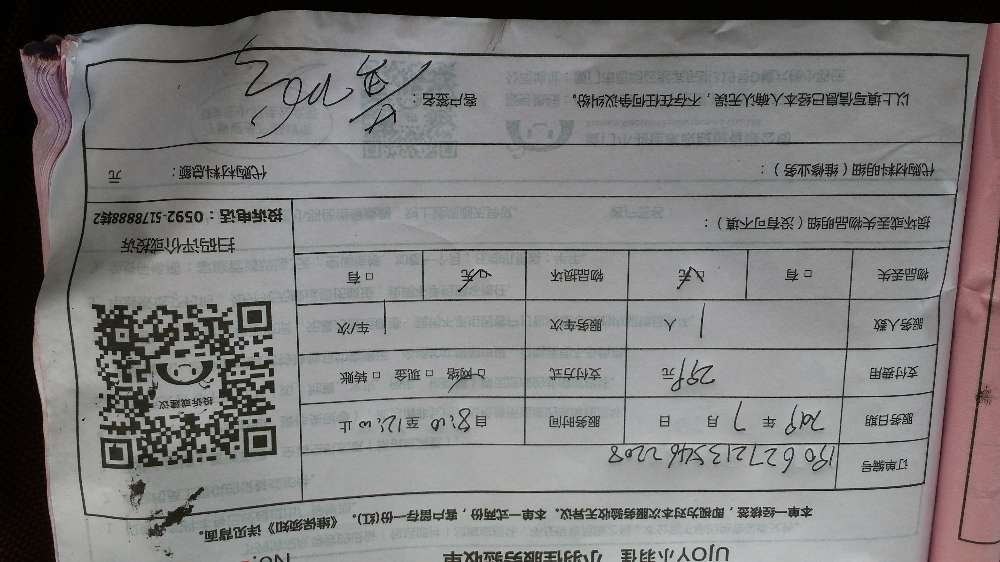 UJOY小羽佳 小羽佳服务验收单 No.
本单一经核签,即视为对本次服务验收无异议。本单一式两份,客户留存一份(红)。《维保须知》详见背面。
订单编号 190627213546 2208
服务日期 2019 年 7 月 日 服务时间 自 8:00 至 12:00 止
支付费用 299 元 支付方式 ☑ 网络 □ 现金 □ 转账
服务人数 1 人 服务车次 1 车/次
物品丢失 □ 有 ☑ 无 物品损坏 ☑ 无 □ 有
损坏或丢失物品明细(没有可不填):
投诉或建议
扫码评价或投诉
投诉电话:0592-5178888转2
代购材料明细(维修业务): 代购材料总额: 元
以上填写信息已经本人确认无误,不存在任何争议纠纷。 客户签名: